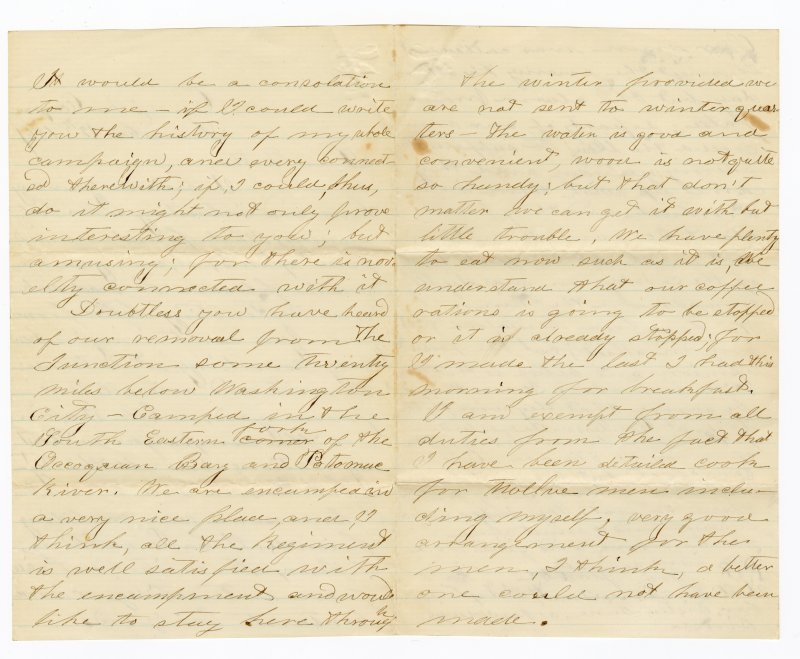 It would be a consolation
to me - if I could write
you the history of my whole
campaign, and every connect-
ed therewith; if I could, thus,
do it might not only prove
interesting to you; but
amusing; for there is nov-
elty connected with it
Doubtless you have heard
of our removal from the
Junction some twenty
miles below Washington
City - Camped in the
South Eastern fork corner of the
Occoquan Bay and Potomac
River. We are encamped in
a very nice place, and I
think, all the Regiment
is well satisfied with
the encampment and would
like to stay here through
the winter provided we
are not sent to winter quar-
ters The water is good and
convenient, wood is not quite
so handy; but that don't
matter we can get it with but
little trouble. We have plenty
to eat now such as it is, We
understand that our coffee
rations is going to be stopped
or it is already stopped; for
I made the last I had this
morning for breakfast.
I am exempt from all
duties from the fact that
I have been detailed cook
for twelve men inclu-
ding myself, very good
arrangement for the
men, I think, a better
one could not have been
made.